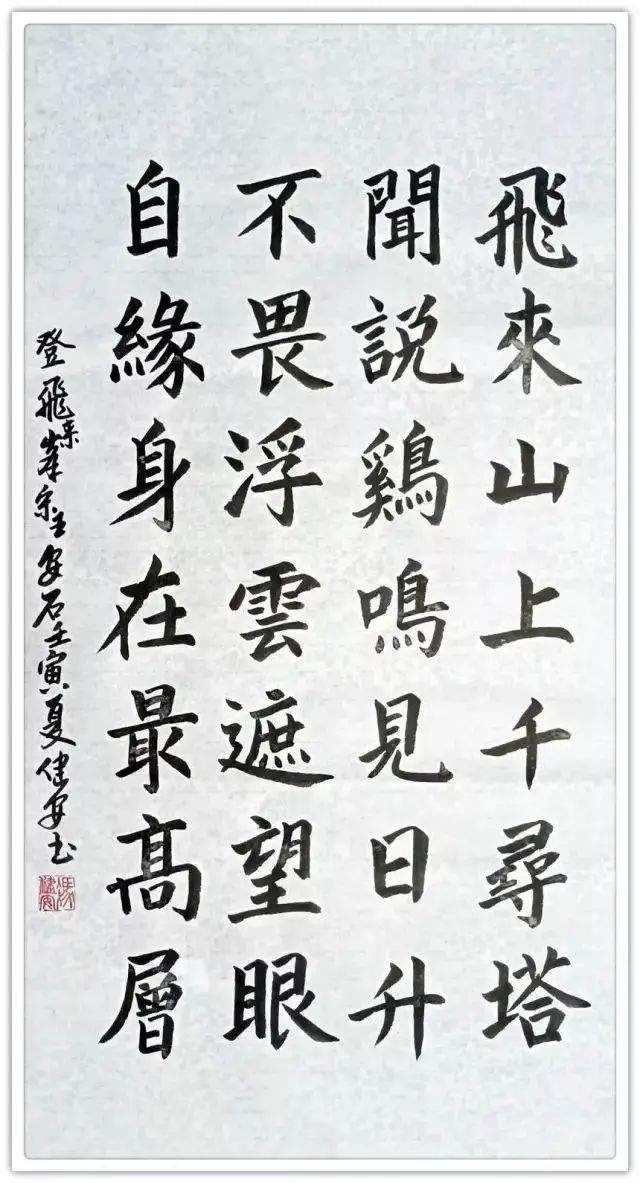 飛來山上千尋塔
聞説鷄鳴見日升
不畏浮雲遮望眼
自緣身在最髙層
登飛來峯宋王安石壬寅夏健安书